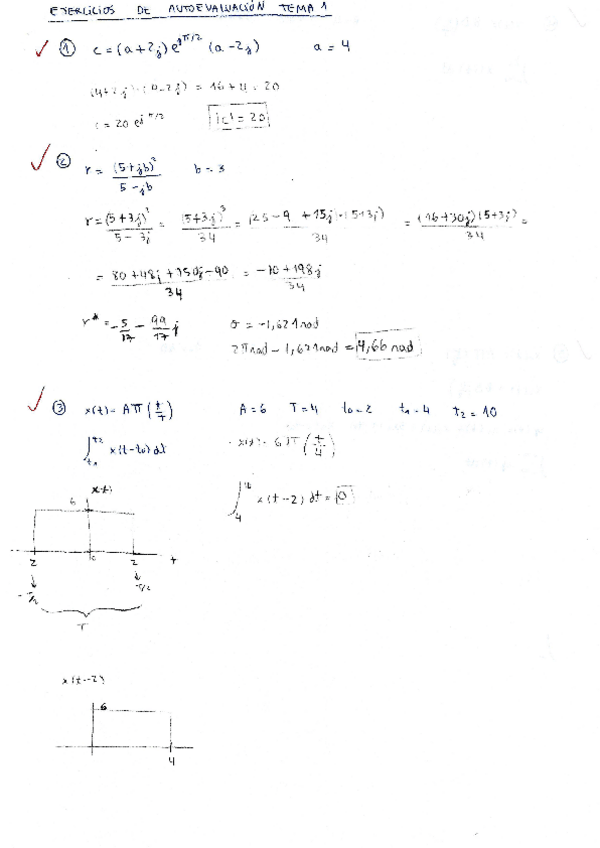 EJERCICIOS DE AUTOEVALUACIÓN TEMA 1
① c = (a+2j) e^{jπ/2} (a-2j)   a = 4
(4+2j)·(4-2j) = 16+4 = 20
c = 20 e^{j π/2}   |c| = 20
② r = (5+jb)² / (5-jb)   b = 3
r = (5+3j)² / (5-3j) = (5+3j)³ / 34 = (25-9+15j)·(5+3j) / 34 = (16+30j)(5+3j) / 34 =
= (80+48j+150j-90) / 34 = (-10+198j) / 34
r* = -5/17 - 99/17 j   σ = -1,621 rad
2π rad - 1,621 rad = 4,66 rad
③ x(t) = Aπ(t/T)   A=6   T=4   t0=2   t1=4   t2=10
∫_{t1}^{t2} x(t-t0) dt   x(t) = 6π(t/4)
∫_{4} x(t-2) dt = 0
x(t)
6
2   2   t
T
x(t-2)
6
4